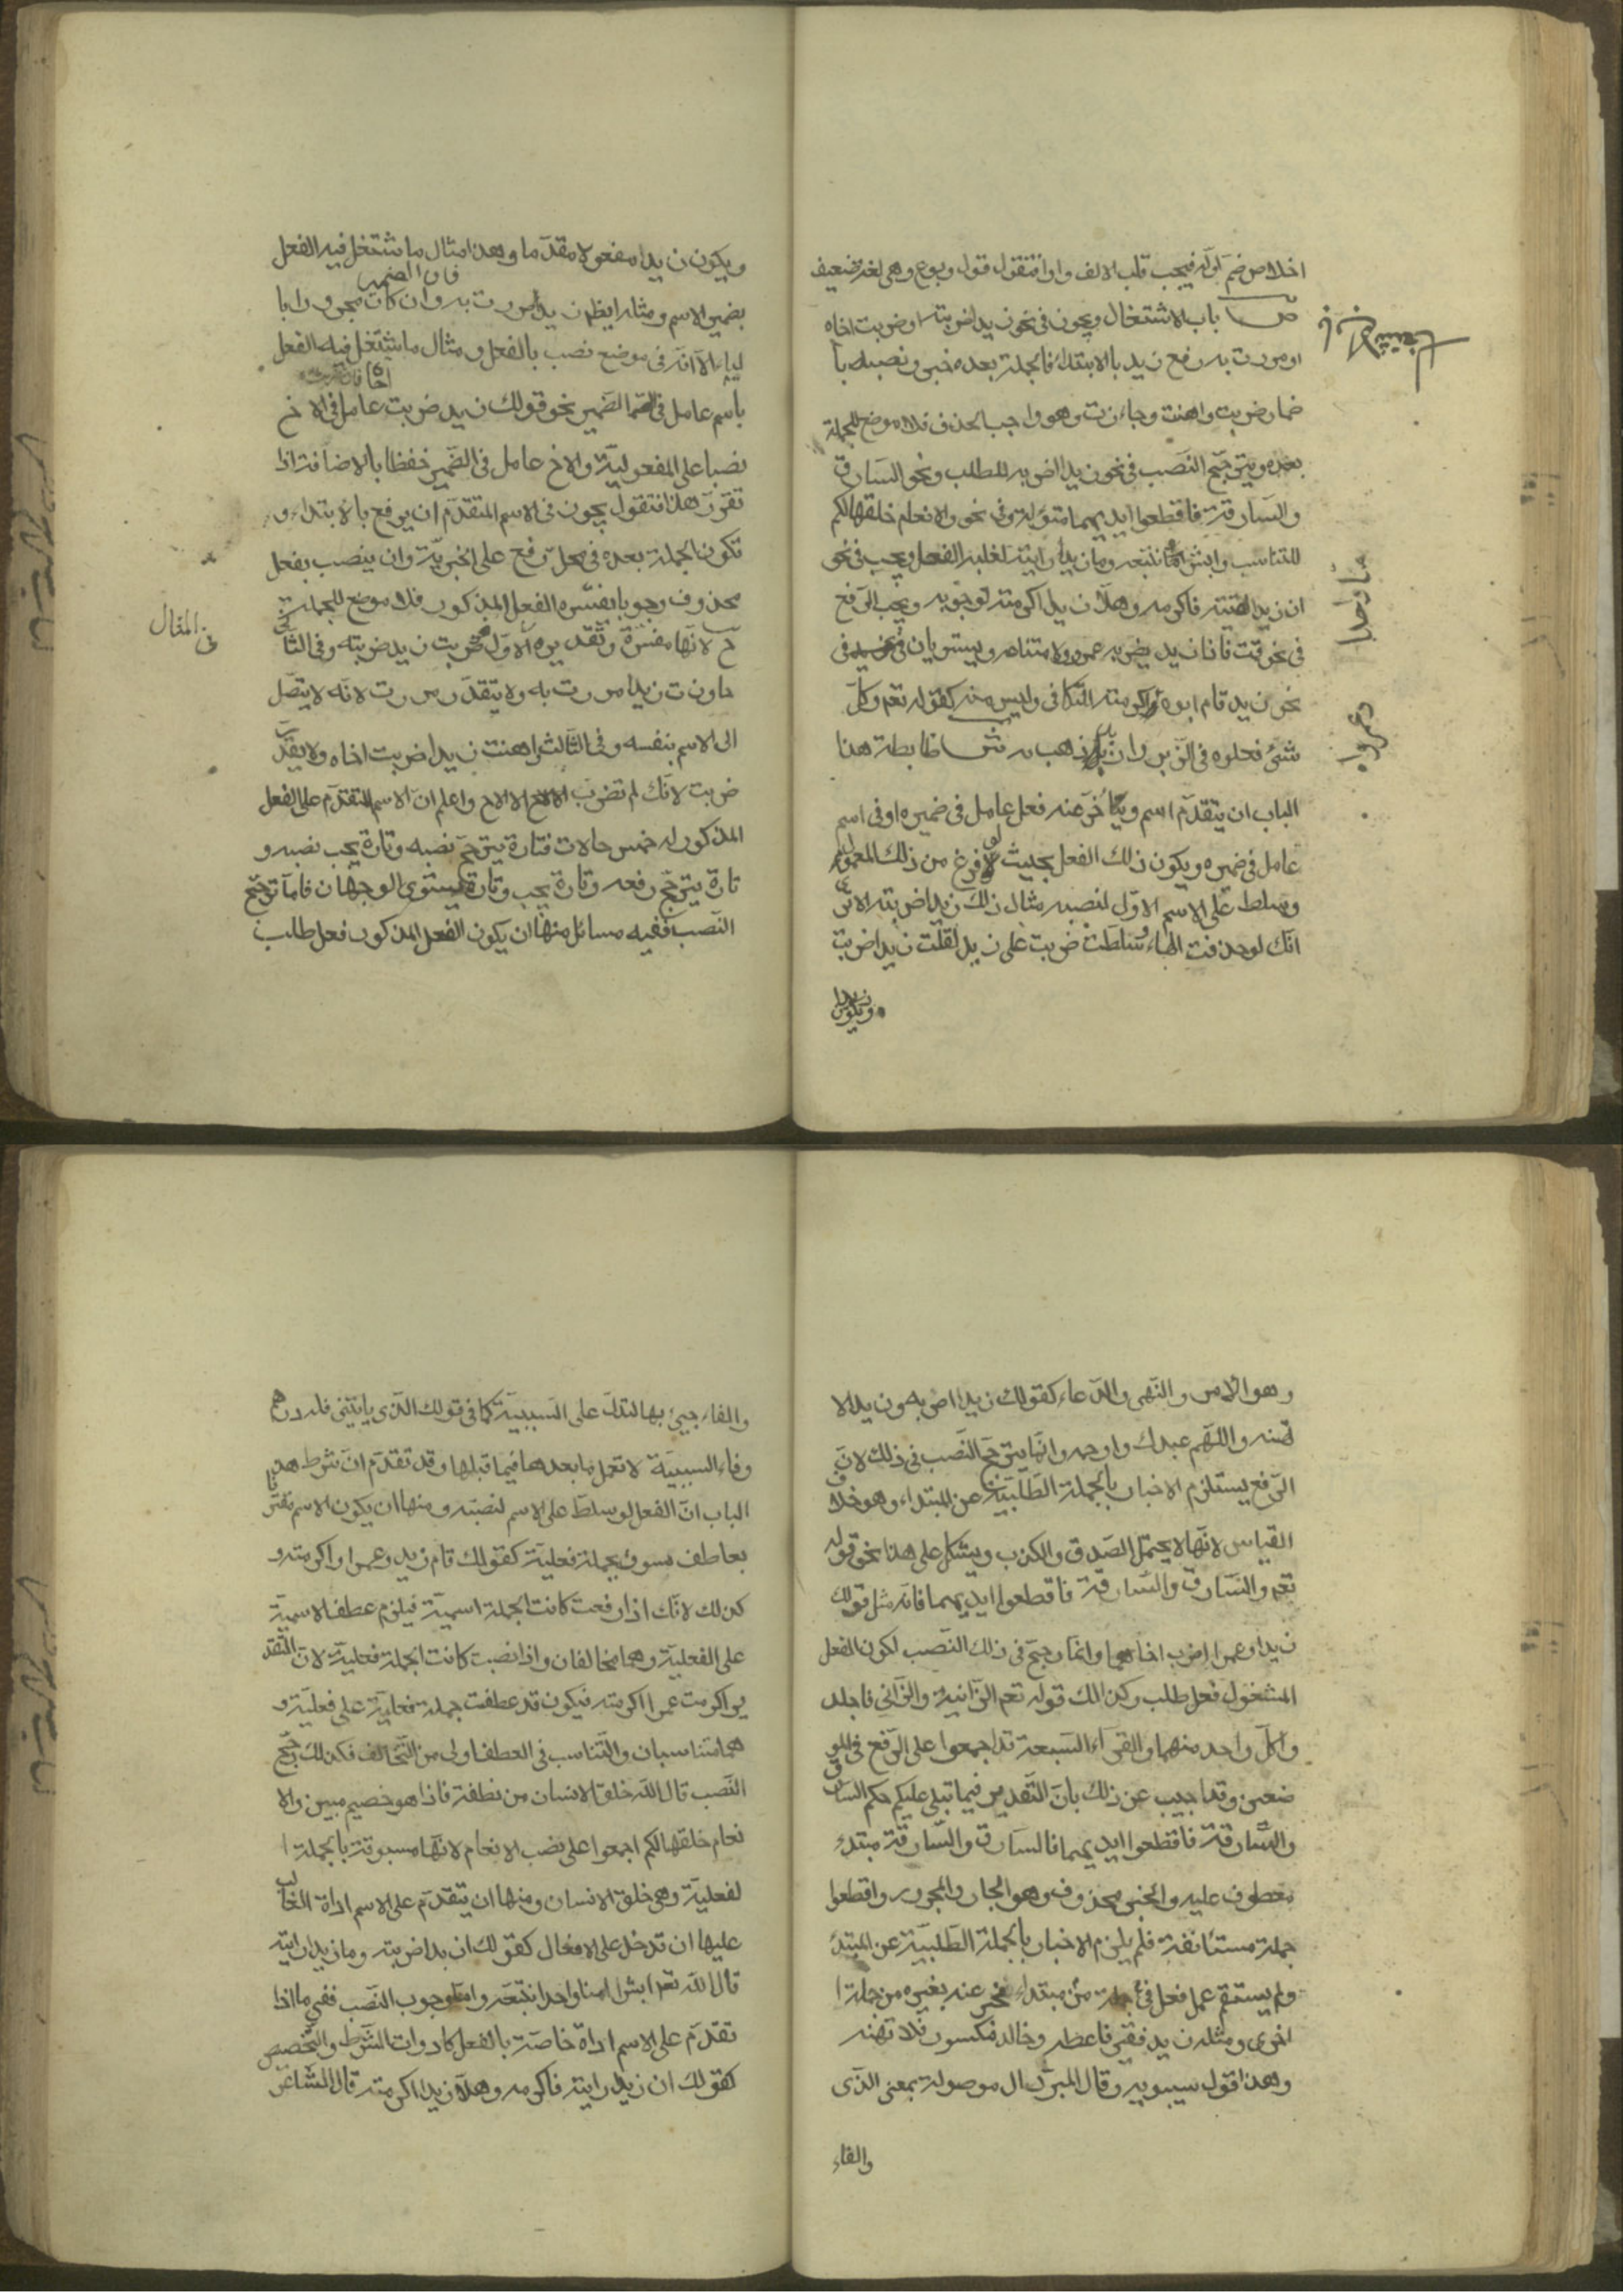 اخلاص ضم اوله فيجب قلب الالف واوا فتقول قول وبوع وهى لغة ضعيف
ص باب الاشتغال ويجوز فى نحو زيدا ضربته او ضربت اخاه
او مررت به رفع زيد بالابتداء فالجملة بعده خبر ونصبه با
ضمار ضربت واهنت وجاوزت وهو واجب الحذف فلا موضع للجملة
بعده ويترجح النصب فى نحو زيدا اضربه للطلب ونحو السارق
والسارقة فاقطعوا ايديهما متؤلة وفى نحو والانعام خلقها لكم
للتناسب وابشرا منا نتبعه وما زيدا رايته لغلبة الفعل ويجب فى نحو
ان زيدا لقيته فاكرمه وهلا زيدا اكرمته لوجوبه ويجب الرفع
فى نحو قت فاذا زيد يضربه عمرو ولامتناعه ويستويان فى
نحو زيد قام ابوه واكرمته للتكافى وليس منه كقوله تعم وكل
شئ فعلوه فى الزبر وازيد ذهب به ش ضابطة هذا
الباب ان يتقدم اسم ويتأخر عنه فعل عامل فى ضميره او فى اسم
عامل فى ضميره ويكون ذلك الفعل بحيث لو فرغ من ذلك المعمول
وسلط على الاسم الاول لنصبه مثال ذلك زيدا ضربته الا ترى
انك لو حذفت الهاء وسلطت ضربت على زيد لقلت زيدا ضربت
ويكون زيدا
ويكون زيدا مفعولا مقدما وهذا مثال ما اشتغل فيه الفعل
فان الضمير
بضمير الاسم ومثاله ايظم زيدا مررت به وان كان مجرورا با
لباء الا انه فى موضع نصب بالفعل ومثال ما اشتغل فيه الفعل
باسم عامل فى الضمير نحو قولك زيد ضربت عامل فى الاخ
نصبا على المفعولية والاخ عامل فى الضمير خفظا بالاضافة اذا
تقرر هذا فتقول يجوز فى الاسم المتقدم ان يرفع بالابتداء و
تكون الجملة بعده فى محل رفع على الخبرية وان ينصب بفعل
محذوف وجوبا يفسره الفعل المذكور فلا موضع للجملة
فى المقال
ح لانها مفسرة وتقديره فى الاول ضربت زيد ضربته وفى الثانى
جاوزت زيدا مررت به ولا يتقدر مررت لانه لا يتصل
الى الاسم بنفسه وفى الثالث اهنت زيدا ضربت اخاه ولا يقدر
ضربت لانك لم تضرب الا الاخ واعلم ان الاسم المتقدم على الفعل
المذكور له خمس حالات فتارة يترجح نصبه وتارة يجب نصبه و
تارة يترجح رفعه وتارة يجب وتارة يستوى الوجهان فاما ترجح
النصب ففيه مسائل منها ان يكون الفعل المذكور فعل طلب
وهو الامر والنهى والدعاء كقولك زيدا اضربه وزيدا لا
تهنه واللهم عبدك وارحمه وانما يترجح النصب فى ذلك لان
الرفع يستلزم الاخبار بالجملة الطلبية عن المبتداء وهو خلاف
القياس لانها لا يحتمل الصدق والكذب ويشكل على هذا نحو قوله
تعم والسارق والسارقة فاقطعوا ايديهما فانه مثل قولك
زيدا وعمرا اضرب اخاهما وانما رجح فى ذلك النصب لكون الفعل
المشغول فعل طلب وكذلك قوله تعم الزانية والزانى فاجلد
وا كل واحد منهما والقراء السبعة قد اجمعوا على الرفع فى المو
ضعين وقد اجيب عن ذلك بان التقدير فيما تيلى عليكم حكم السارق
والسارقة فاقطعوا ايديهما فالسارق والسارقة مبتدء
معطوف عليه والخبر محذوف وهو الجار والمجرور واقطعوا
جملة مستانفة فلم يلزم الاخبار بالجملة الطلبية عن المبتدء
ولم يستقم عمل فعل فى جملة من مبتداء مخبر عنه بغيره من جملة ا
اخرى ومثله زيد فقير فاعطه وخالد مكسور فلا تهنه
وهذا قول سيبويه وقال المبرد ال موصولة بمعنى الذى
والفاء
والفاء جيئ بها لتدل على السببية كما فى قولك الذى ياتينى فله درهم
وفاء السببية لا تعمل ما بعدها فيما قبلها وقد تقدم ان شرط هذا
الباب ان الفعل لو سلط على الاسم لنصبه ومنها ان يكون الاسم مقترنا
بعاطف مسبوق بجملة فعلية كقولك قام زيد وعمرا واكرمته و
كذلك لانك اذا رفعت كانت الجملة اسمية فيلزم عطف الاسمية
على الفعلية وهما مخالفان واذا نصبت كانت الجملة فعلية لان التقد
ير اكرمت عمرا اكرمته فيكون قد عطفت جملة فعلية على فعلية و
هما متناسبان والتناسب فى العطف اولى من التخالف فكذلك رجح
النصب قال الله خلق الانسان من نطفة فاذا هو خصيم مبين والا
نعام خلقها لكم اجمعوا على نصب الانعام لانها مسبوقة بالجملة ا
لفعلية وهى خلق الانسان ومنها ان يتقدم على الاسم اداة الغالب
عليها ان تدخل على الافعال كقولك ازيدا ضربته وما زيدا رايته
قال الله تعم ابشرا منا واحدا نتبعه واما وجوب النصب ففى ما اذا
تقدم على الاسم اداة خاصة بالفعل كادوات الشرط والتخصيص
كقولك ان زيدا رايته فاكرمه وهلا زيدا اكرمته قال الشاعر